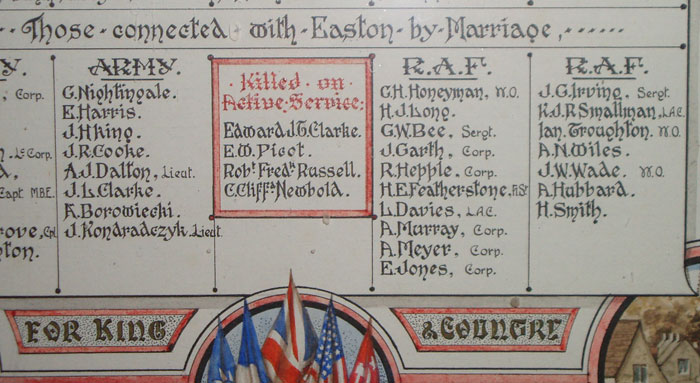 Those - connected - with - Easton - by - Marriage,
Y.
, Corp.
Lc. Corp.
Capt. M.B.E.
rove, Cpl.
ton.
ARMY.
G. Nightingale.
E. Harris.
J. H. King.
J. R. Cooke.
A. J. Dalton, Lieut.
J. L. Clarke.
K. Borowiecki.
J. Kondradczyk. Lieut.
Killed · on ·
Active · Service:
Edward J. G. Clarke.
E. W. Picot.
Robt. Fredk. Russell.
C. Cliffd. Newbold.
R.A.F.
G. H. Honeyman, W.O.
H. J. Long.
G. W. Bee, Sergt.
J. Garth, Corp.
R. Hepple, Corp.
H. E. Featherstone,
L. Davies, L.A.C.
A. Murray, Corp.
A. Meyer, Corp.
E. Jones, Corp.
R.A.F.
J. G. Irving, Sergt.
K. J. R. Smallman, L.A.C.
Ian. Troughton. W.O.
A. N. Wiles.
J. W. Wade. W.O.
A. Hubbard.
H. Smith.
FOR KING
& COUNTRY